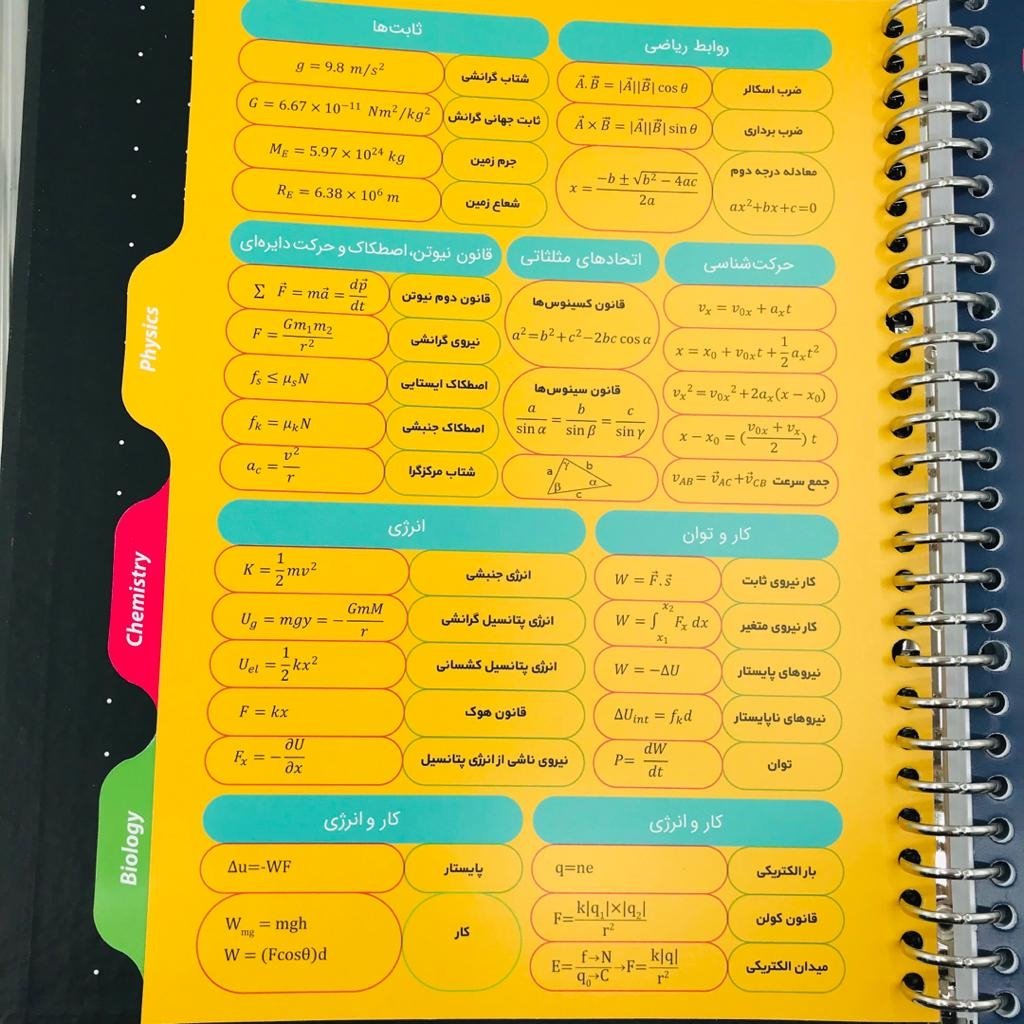 روابط ریاضی
ضرب اسکالر A⃗.B⃗ = |A⃗||B⃗| cos θ
ضرب برداری A⃗ × B⃗ = |A⃗||B⃗| sin θ
معادله درجه دوم
ax²+bx+c=0
x = (−b ± √(b² − 4ac)) / 2a
ثابت‌ها
شتاب گرانشی g = 9.8 m/s²
ثابت جهانی گرانش G = 6.67 × 10⁻¹¹ Nm²/kg²
جرم زمین M_E = 5.97 × 10²⁴ kg
شعاع زمین R_E = 6.38 × 10⁶ m
حرکت‌شناسی
v_x = v_0x + a_x t
x = x_0 + v_0x t + 1/2 a_x t²
v_x² = v_0x² + 2a_x(x − x_0)
x − x_0 = ((v_0x + v_x)/2) t
جمع سرعت v_AB = v⃗_AC + v⃗_CB
اتحادهای مثلثاتی
قانون کسینوس‌ها
a² = b² + c² − 2bc cos α
قانون سینوس‌ها
a/sin α = b/sin β = c/sin γ
a γ b
β α
c
قانون نیوتن، اصطکاک و حرکت دایره‌ای
قانون دوم نیوتن ∑ F⃗ = ma⃗ = dp⃗/dt
نیروی گرانشی F = Gm₁m₂/r²
اصطکاک ایستایی f_s ≤ μ_s N
اصطکاک جنبشی f_k = μ_k N
شتاب مرکزگرا a_c = v²/r
کار و توان
کار نیروی ثابت W = F⃗.s⃗
کار نیروی متغیر W = ∫_{x₁}^{x₂} F_x dx
نیروهای پایستار W = −ΔU
نیروهای ناپایستار ΔU_int = f_k d
توان P= dW/dt
انرژی
انرژی جنبشی K = 1/2 mv²
انرژی پتانسیل گرانشی U_g = mgy = − GmM/r
انرژی پتانسیل کشسانی U_el = 1/2 kx²
قانون هوک F = kx
نیروی ناشی از انرژی پتانسیل F_x = − ∂U/∂x
کار و انرژی
بار الکتریکی q=ne
قانون کولن F= k|q₁|×|q₂|/r²
میدان الکتریکی E= f→N/q₀→C →F= k|q|/r²
کار و انرژی
پایستار Δu=-WF
کار W_mg = mgh
W = (Fcosθ)d
Physics
Chemistry
Biology